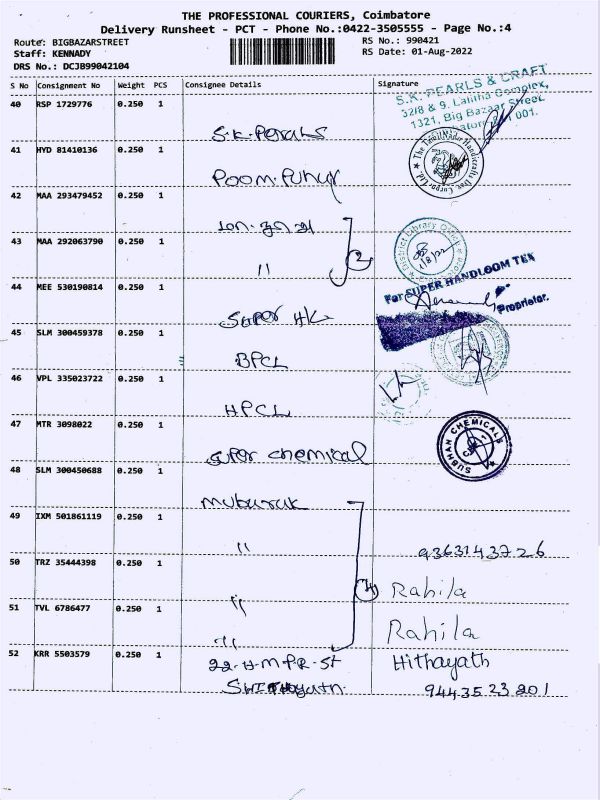 THE PROFESSIONAL COURIERS, Coimbatore
Delivery Runsheet - PCT - Phone No.:0422-3505555 - Page No.:4
Route: BIGBAZARSTREET
RS No.: 990421
Staff: KENNADY
RS Date: 01-Aug-2022
DRS No.: DCJB99042104
S No Consignment No Weight PCS Consignee Details Signature
40 RSP 1729776 0.250 1
S.K. PEARLS & CRAFT
32/8 & 9, Lalitha Complex,
1321, Big Bazaar Street,
001.
41 HYD 81410136 0.250 1
Poom.Puhur
The TamilNadu Handicrafts Dev. Corpn Ltd.
42 MAA 293479452 0.250 1
43 MAA 292063790 0.250 1
"
2
District Library Office
1/8/22
44 MEE 530190814 0.250 1
Super H/L
For SUPER HANDLOOM TEX
Proprietor.
45 SLM 300459378 0.250 1
BPCL
46 VPL 335023722 0.250 1
HPCL
47 MTR 3098022 0.250 1
Super chemical
SUBHAN CHEMICALS
48 SLM 300450688 0.250 1
mubaruk
49 IXM 501861119 0.250 1
"
9363143726
50 TRZ 35444398 0.250 1
"
4
Rahila
51 TVL 6786477 0.250 1
"
Rahila
52 KRR 5503579 0.250 1
22-H-M-P-R-St
Hithayath
9443523201